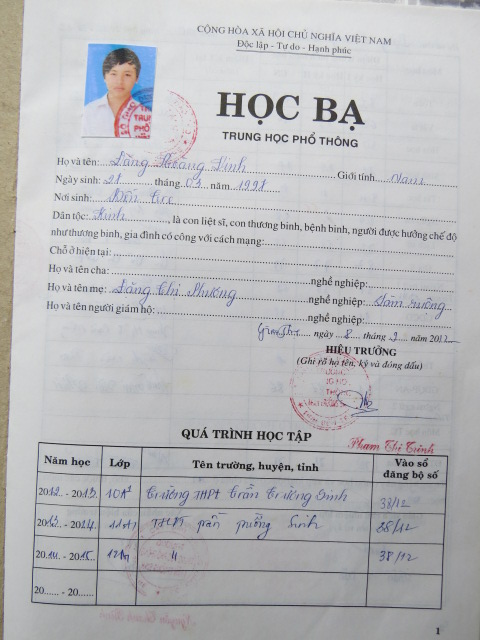 CỘNG HÒA XÃ HỘI CHỦ NGHĨA VIỆT NAM
Độc lập - Tự do - Hạnh phúc
HỌC BẠ
TRUNG HỌC PHỔ THÔNG
Họ và tên: Đặng Hoàng Sinh Giới tính Nam
Ngày sinh: 21 tháng 03 năm 1997
Nơi sinh: Bến Tre
Dân tộc: Kinh, là con liệt sĩ, con thương binh, bệnh binh, người được hưởng chế độ
như thương binh, gia đình có công với cách mạng:
Chỗ ở hiện tại:
Họ và tên cha: nghề nghiệp:
Họ và tên mẹ: Đặng Thị Phương nghề nghiệp: Làm ruộng
Họ và tên người giám hộ: nghề nghiệp:
ngày 8 tháng 9 năm 2012
HIỆU TRƯỞNG
(Ghi rõ họ tên, ký và đóng dấu)
Phạm Thị Trinh
QUÁ TRÌNH HỌC TẬP
Năm học Lớp Tên trường, huyện, tỉnh Vào sổ đăng bộ số
2012 - 2013 10A1 Trường THPT Trần Trường Sinh 33/12
2013 - 2014 11A1 38/12
2014 - 2015 " 38/12
20...... - 20......
1